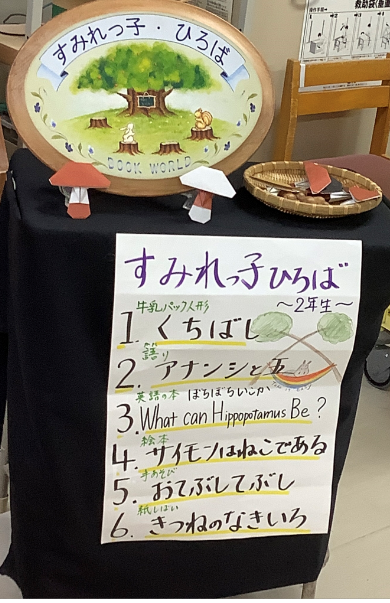 すみれっ子・ひろば
BOOK WORLD
すみれっ子ひろば
〜2年生〜
牛乳パック人形
1. くちばし
語り
2. アナンシと五
英語の本 ぼちぼちいこか
3. What can Hippopotamus Be?
絵本
4. サイモンはねこである
手あそび
5. おてぶしてぶし
紙しばい
6. きつねのなきいろ